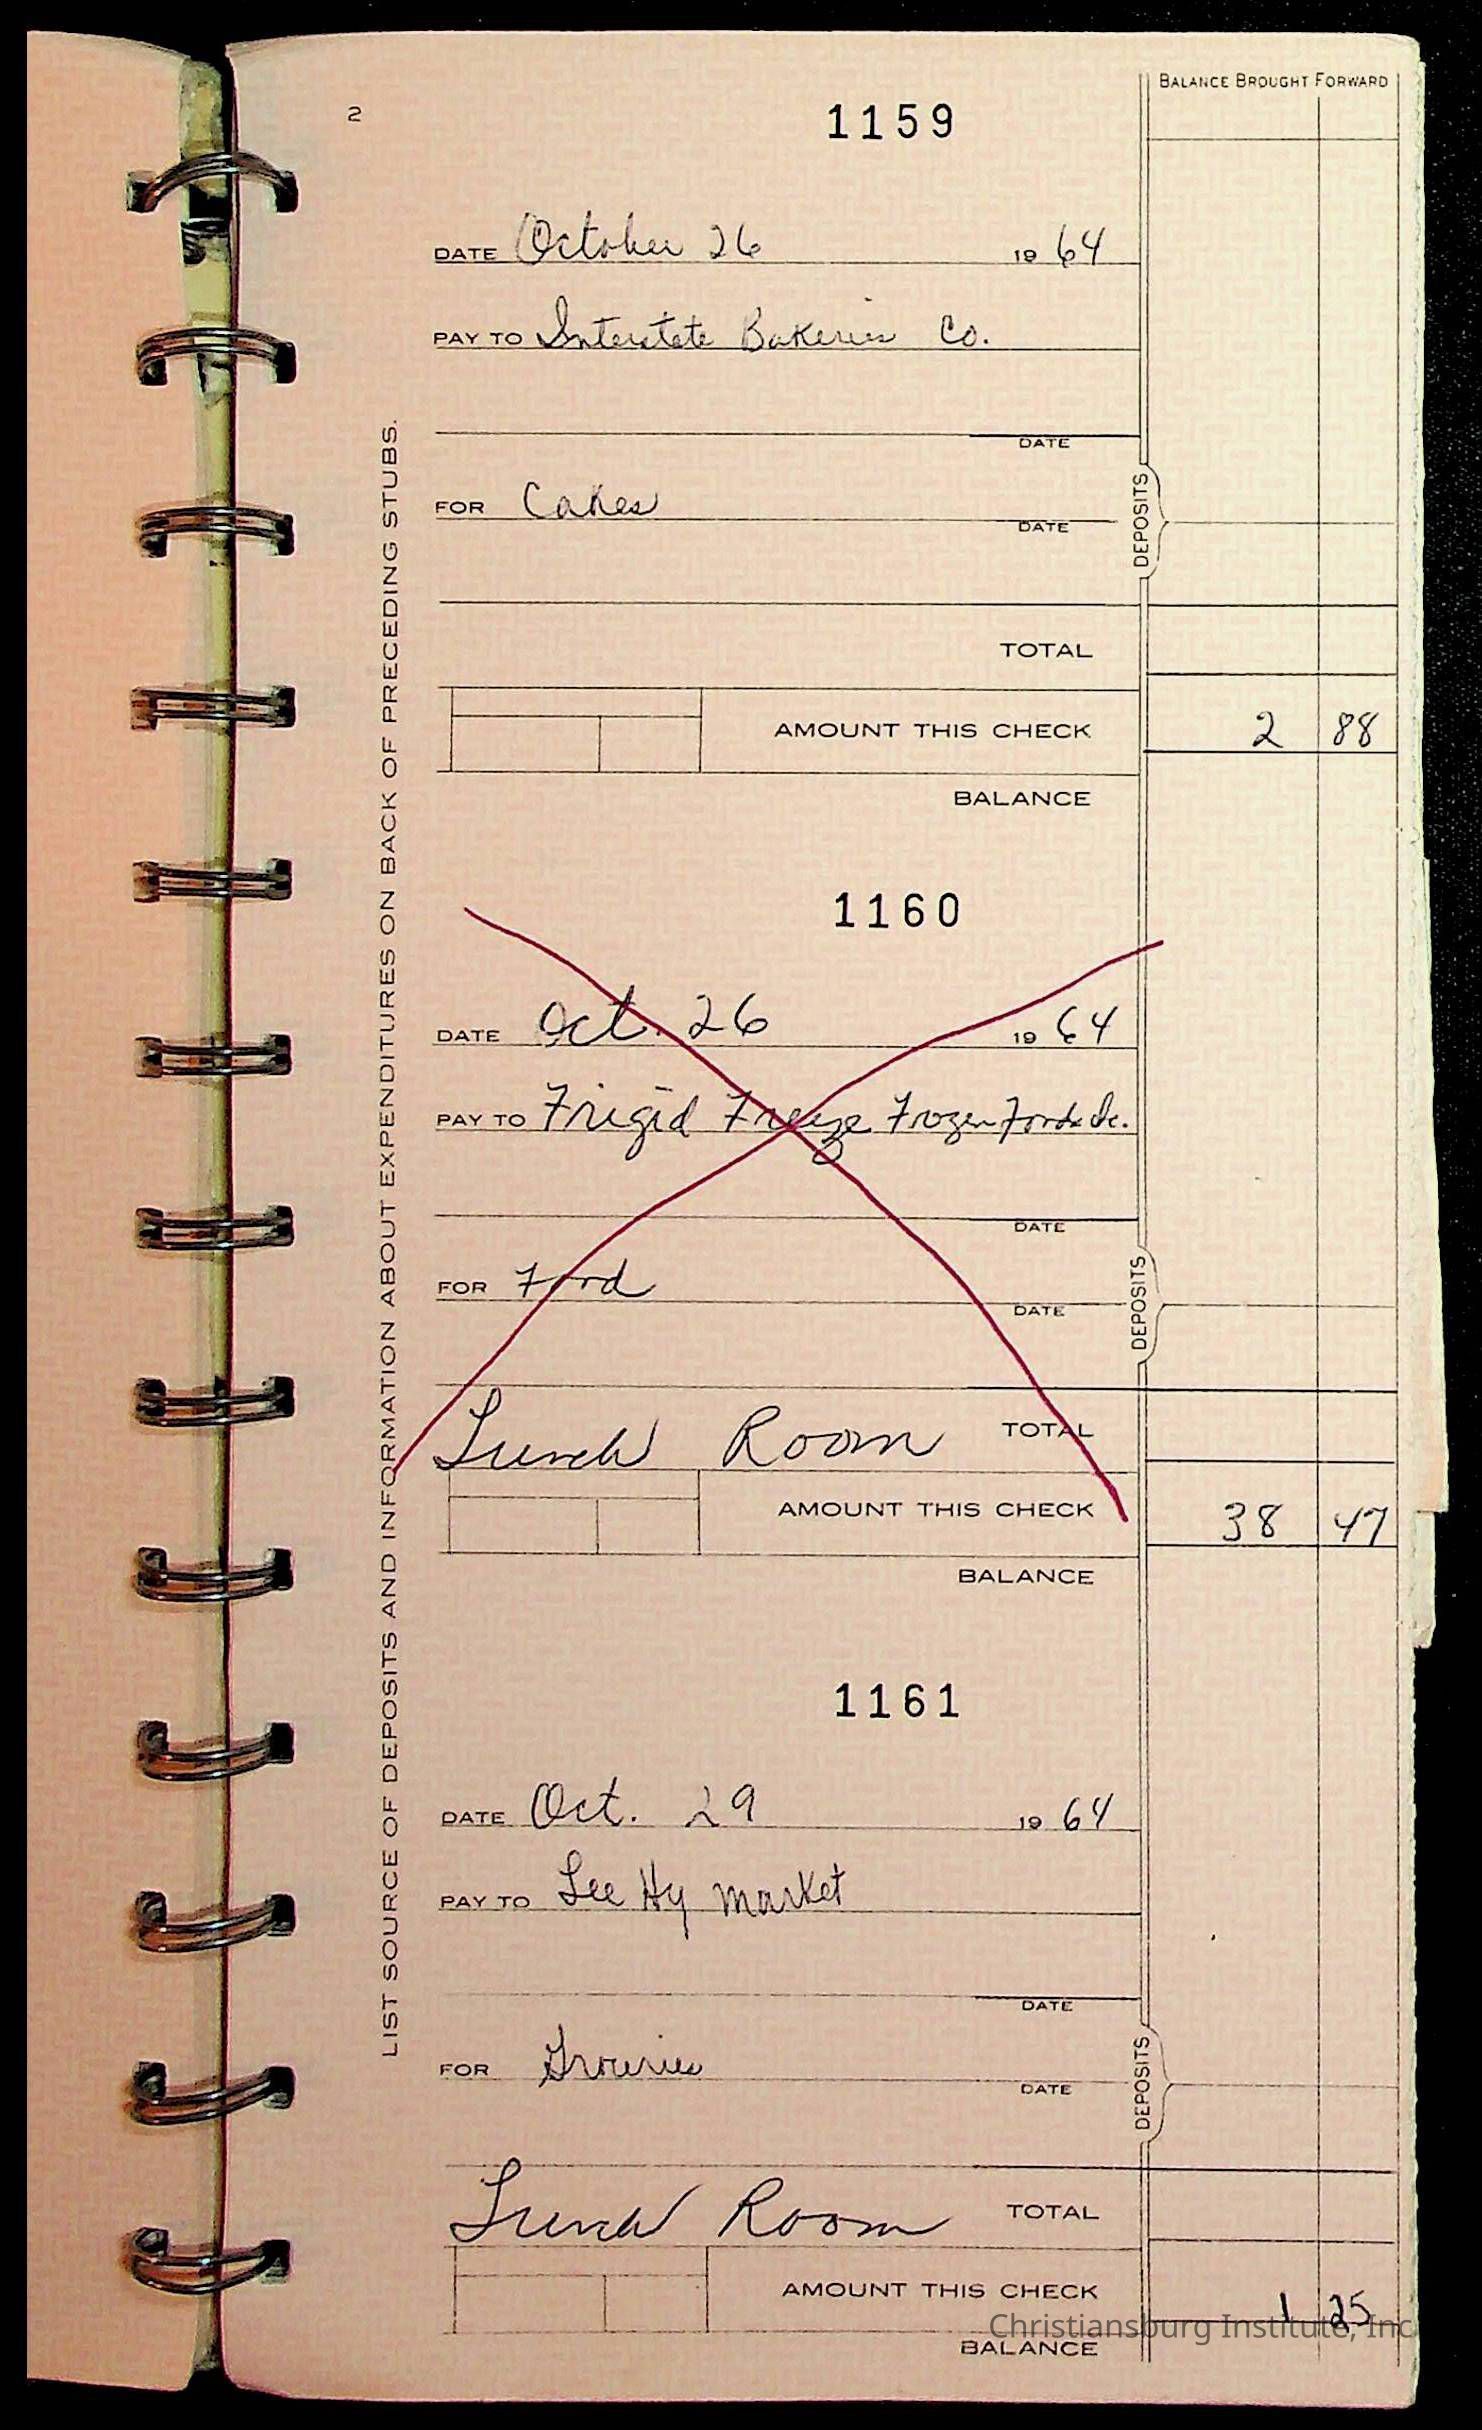 2
1159
BALANCE BROUGHT FORWARD
DATE October 26 19 64
PAY TO Interstate Bakeries Co.
DATE
FOR Cakes
DATE
DEPOSITS
TOTAL
AMOUNT THIS CHECK 2 88
BALANCE
1160
DATE Oct. 26 19 64
PAY TO Frigid Freeze Frozen Foods Inc.
DATE
FOR Food
DATE
DEPOSITS
Lunch Room TOTAL
AMOUNT THIS CHECK 38 47
BALANCE
1161
DATE Oct. 29 19 64
PAY TO Lee Hy Market
DATE
FOR Groceries
DATE
DEPOSITS
Lunch Room TOTAL
AMOUNT THIS CHECK 1 25
BALANCE
LIST SOURCE OF DEPOSITS AND INFORMATION ABOUT EXPENDITURES ON BACK OF PRECEDING STUBS.
Christiansburg Institute, Inc